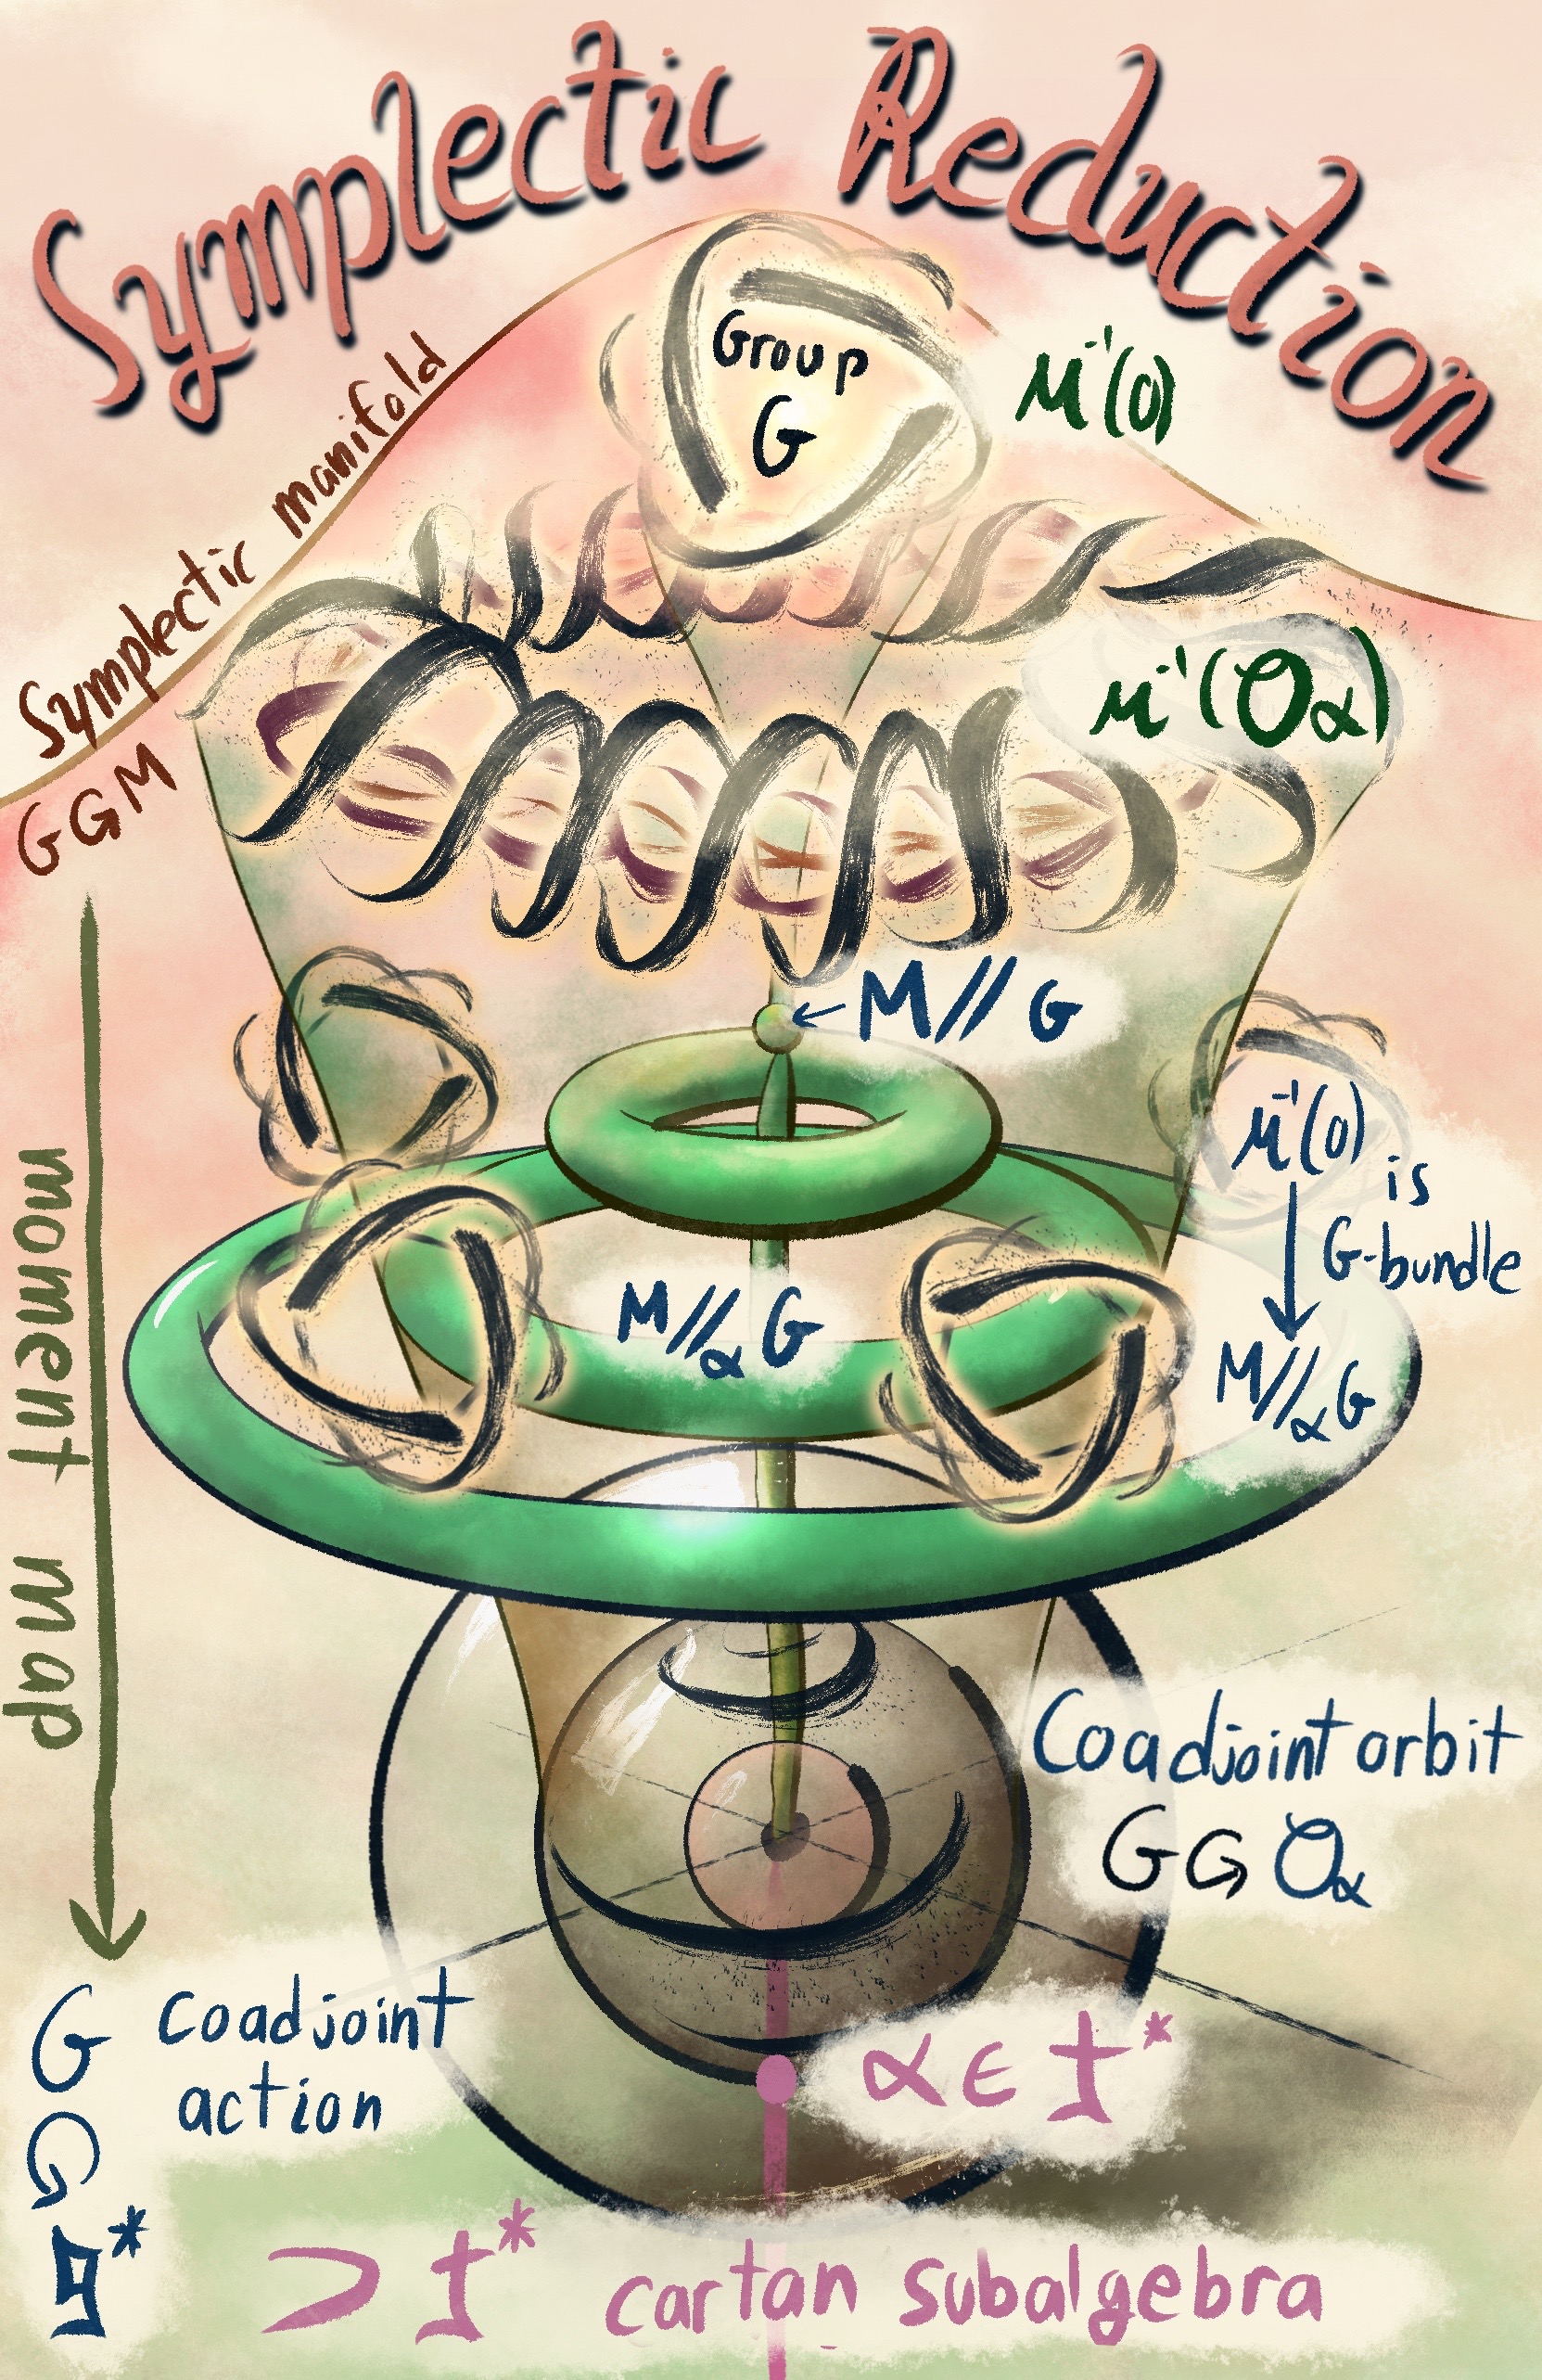 Symplectic Reduction
Group
G
μ⁻¹(0)
Symplectic manifold
G ↻ M
μ⁻¹(𝒪α)
← M//G
μ⁻¹(0) is
↓ G-bundle
M//αG
M//αG
moment map
Coadjoint orbit
G ↻ 𝒪α
G coadjoint
action
↻
𝔤*
α ∈ 𝔱*
⊃ 𝔱* cartan subalgebra